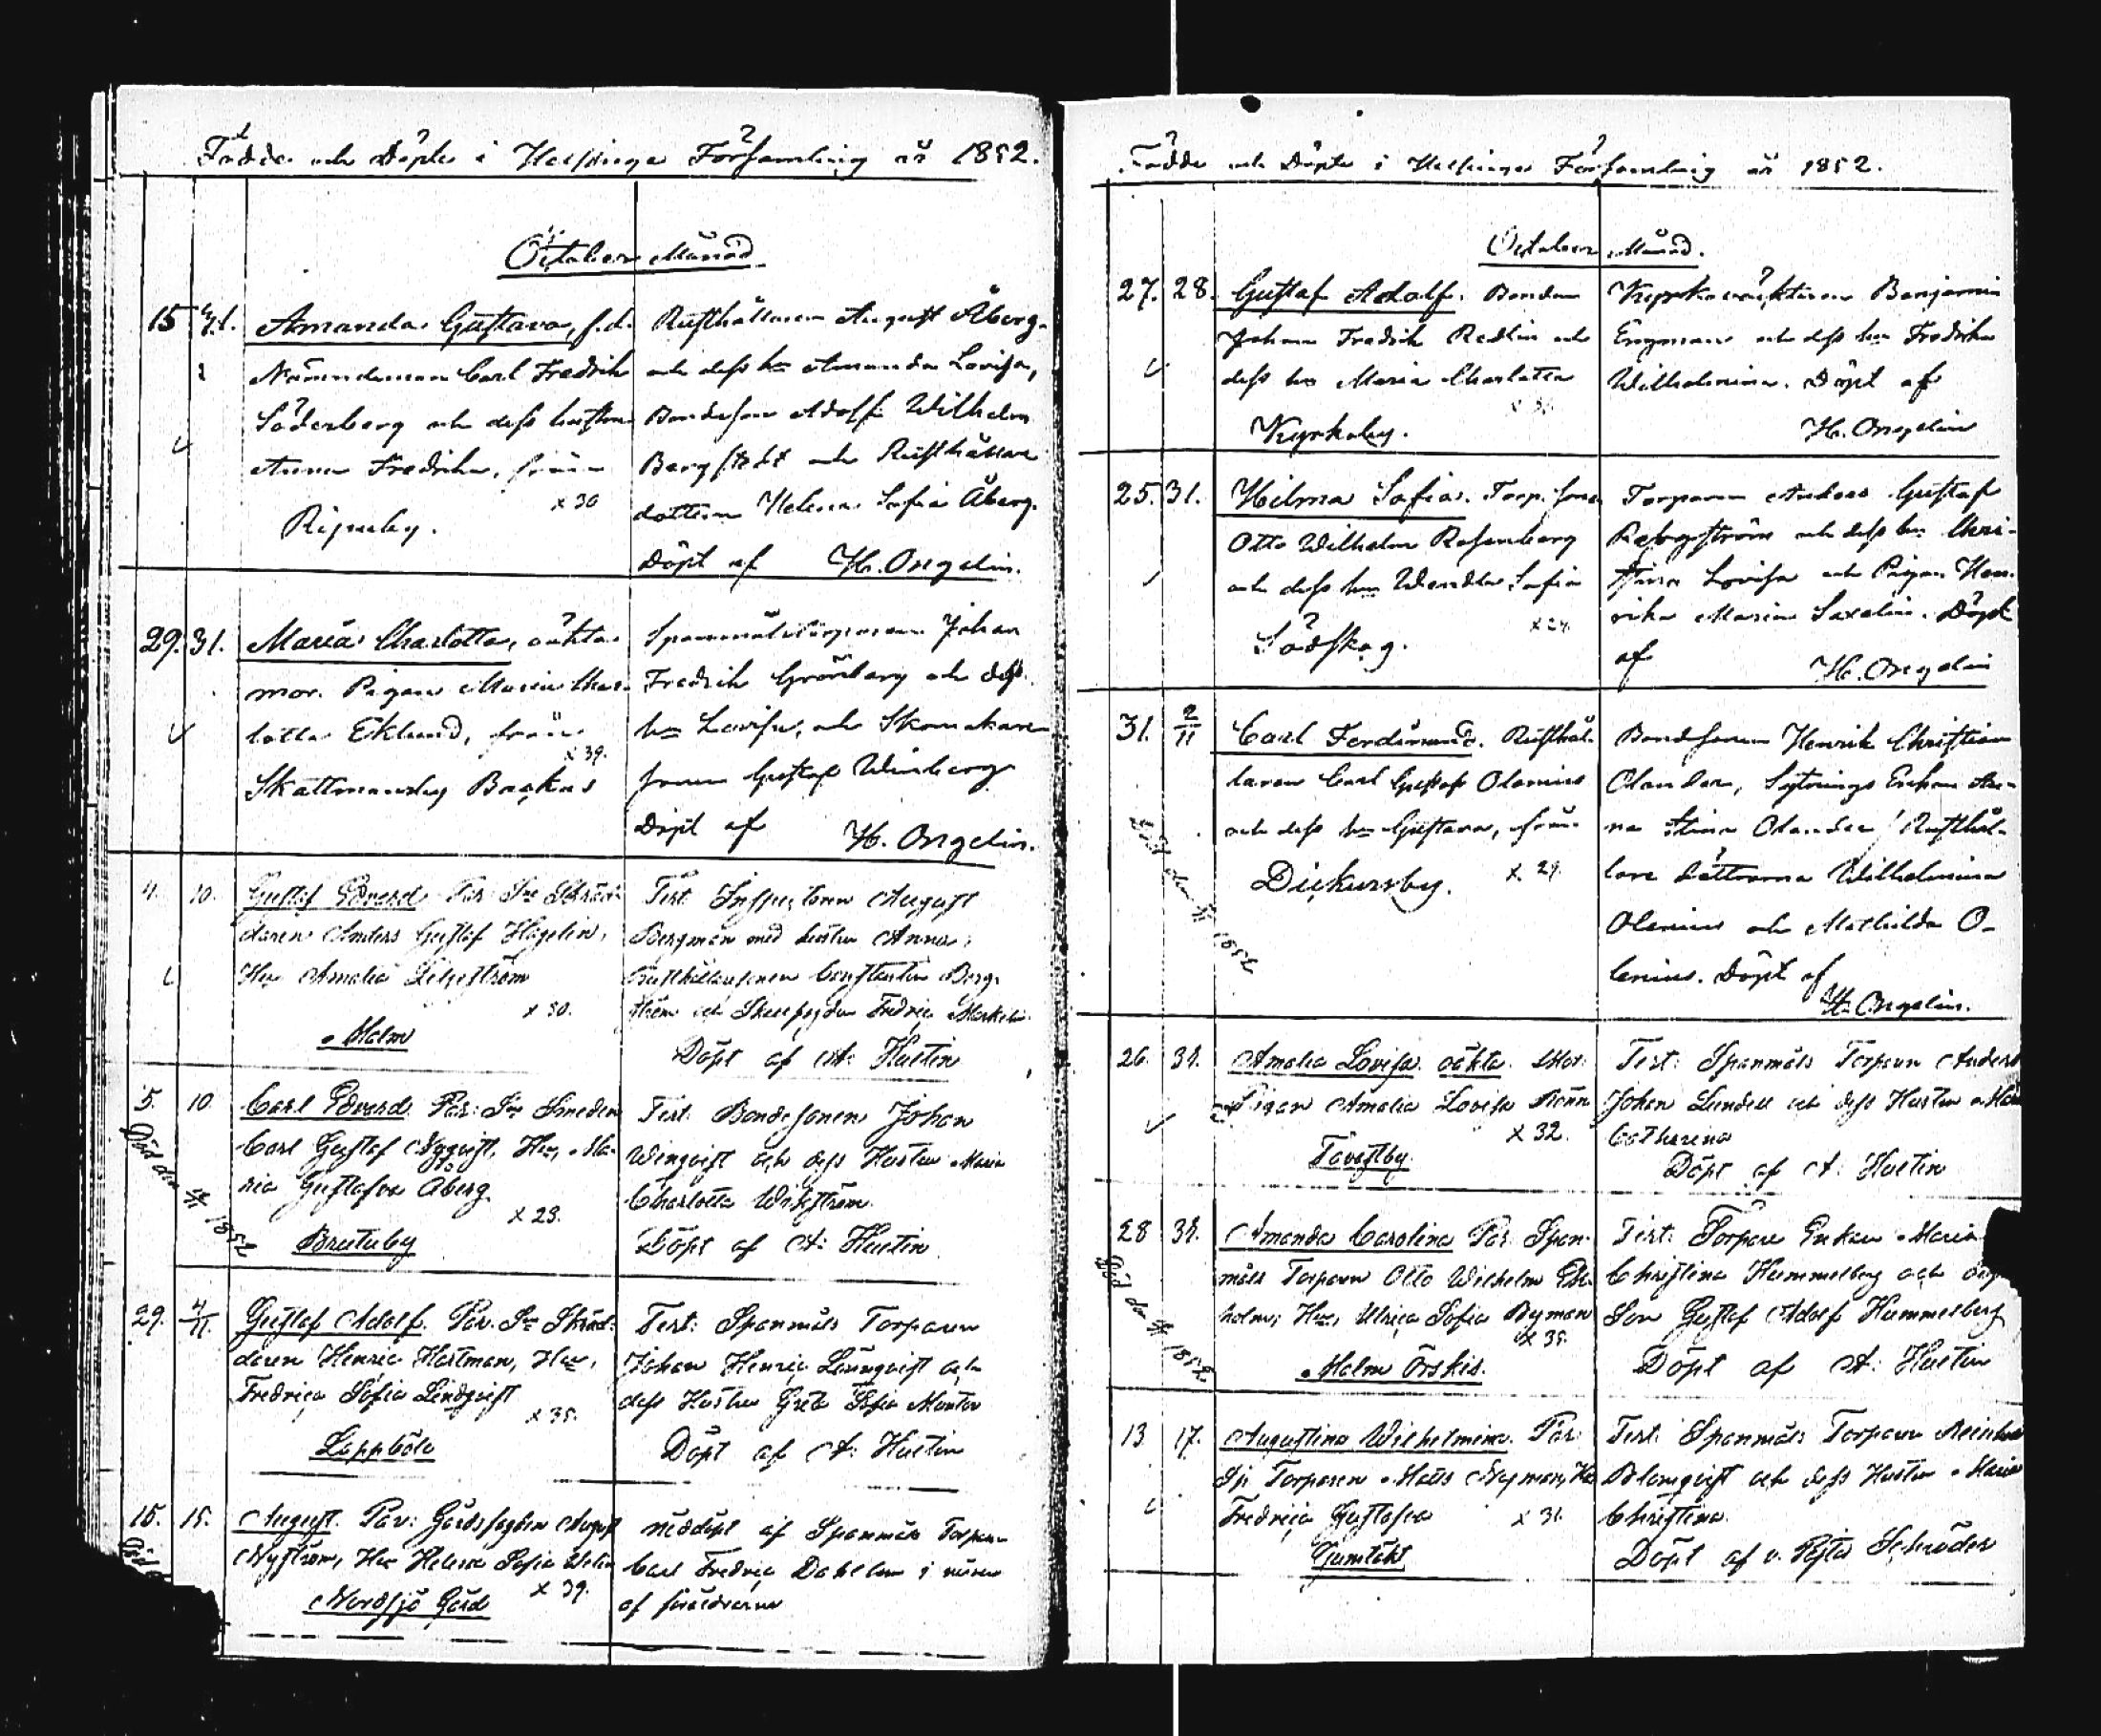 Födde och Döpte i Helsinge Församling år 1852.
October Månad
15 24.
Amanda Gustava, f. d.
Nämndeman Carl Fredrik
Söderberg och dess hustru
Anna Fredrika, från
x 30
Ripuby.
Rusthållaren August Åberg
och dess h_ Amanda Lovisa,
Bondesonen Adolf Wilhelm
Bergstedt och Rusthållare
dottern Helena Sofia Åberg.
Döpt af H. Ongelin.
29. 31.
Maria Charlotta, oäkta
mor. Pigan Maria Char-
lotta Eklund, från
x 39.
Skattmansby Backas
Spannmålstorparen Johan
Fredrik Grönberg och dess
h_ Lovisa, och Skomakare
sonen Gustaf Winberg
Döpt af H. Ongelin.
4. 10.
Gustaf Edvard Par: S_ Skräd-
daren Anders Gustaf Hagelin,
Hu Amalia
x 30.
Malm
Test. Inspectoren August
Bergman med hustru Anna,
Rusthållaresonen Constantin Berg-
ström och Fredrica
Döpt af A: Hustin
5. 10.
Carl Edvard. Par: S_ Smeden
Carl Gustaf Nyqvist, Hu, Ma-
ria Gustafva Åberg.
x 23.
Brutuby
Död den 1852
Test. Bondesonen Johan
Winqvist och dess Hustru Maria
Charlotta Wikström.
Döpt af A: Hustin
29. 4/11.
Gustaf Adolf. Par. S_ Skräd-
daren Henric Hartman, Hu,
Fredrica Sofia Lindqvist
x 35.
Lappböle
Test: Spanmåls Torparen
Johan Henric Lönnqvist och
dess Hustru Greta Sofia
Döpt af A: Hustin
15. 15.
August. Par: Gårdsfogden August
Nyström, Hu Helena Sofia
x 39.
Nordsjö Gård
Död
nöddöpt af Spanmåls Torparen
Carl Fredric i närvaro
af föräldrarne
Födde och Döpte i Helsinge Församling år 1852.
October Månad.
27. 28.
Gustaf Adolf. Bonden
Johan Fredrik Redlin och
dess h_ Maria Charlotta
Kyrkoby.
Kyrkovaktaren Benjamin
Engman och dess h_ Fredrika
Wilhelmina. Döpt af
H. Ongelin
25. 31.
Hilma Sofia. Torp. sonen
Otto Wilhelm Rosenberg
och dess h_ Wendla Sofia
x 24.
Södskog.
Torparen Anders Gustaf
Rehnström och dess h_ Chri-
stina Lovisa och Pigan Hen-
rika Maria Saxelin. Döpt
af H. Ongelin
31. 2/11
Carl Ferdinand. Rusthål-
laren Carl Gustaf Olenius
och dess h_ Gustava, från
x 29.
Dickursby.
Död den 1852
Bondsonen Henrik Christian
Olander, Sytnings Enkan An-
na Stina Olander, Rusthål-
lare döttrarna Wilhelmina
Olenius och Mathilda O-
lenius. Döpt af
H. Ongelin.
26. 31.
Amalia Lovisa. oäkta. Mor:
Pigan Amalia Lovisa Rönn
x 32.
Tavastby
Test: Spanmåls Torparen Anders
Johan Lundell och dess Hustru Maria
Catharina
Döpt af A: Hustin
28 31.
Amanda Carolina Par: Span-
måls Torparen Otto Wilhelm Ek-
holm, Hu, Ulrica Sofia Nyman
x 35.
Malm Örskis.
Död den 1852
Test: Torpare Enkan Maria
Christina Hummelberg och dess
Son Gustaf Adolf Hummelberg
Döpt af A: Hustin
13 17.
Augustina Wilhelmina. Par:
Sp: Torparen Matts Nyman, Hu
Fredrica Gustafva
x 31.
Gumtäkt
Test: Spanmåls Torparen
Blomqvist och dess Hustru Maria
Christina.
Döpt af v. Pastor Schröder